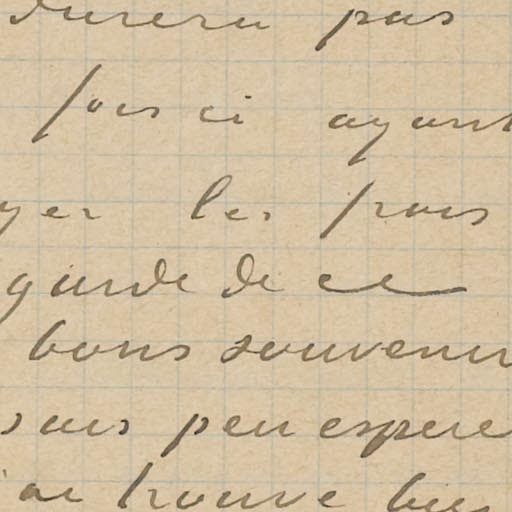 durera pas
fois ci ayant
yer les frais
garde de ce
bons souvenir
sais peu espere
ai trouve bie